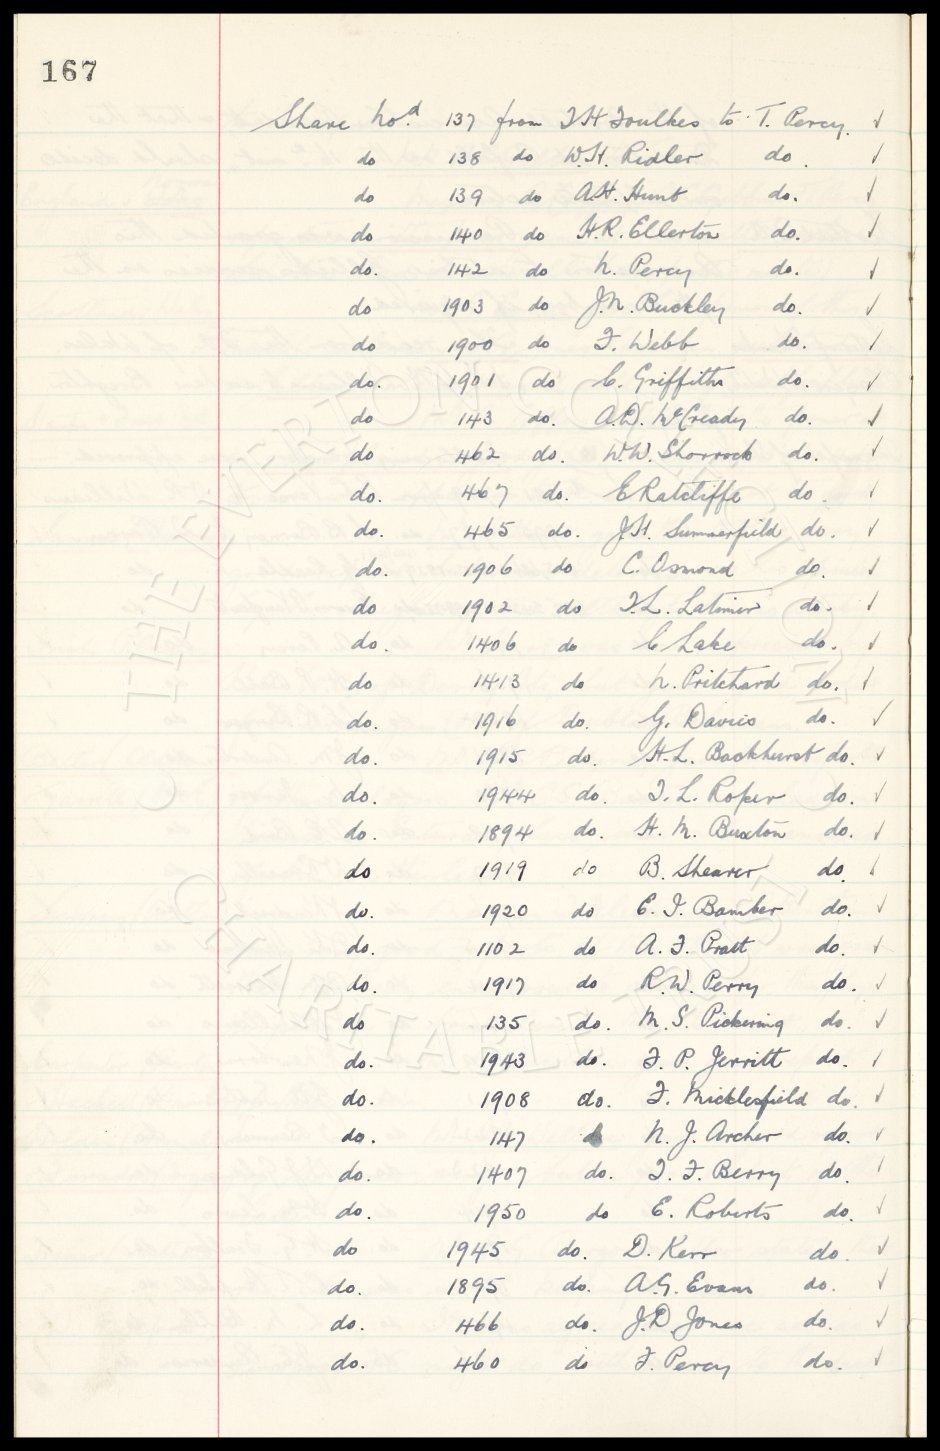 167
Share No.d 137 from T H Foulkes to T. Percy.
do 138 do W.H. Ridler do.
do 139 do A.H. Hunt do.
do 140 do H.R. Ellerton do.
do. 142 do N. Percy do.
do 1903 do J.N. Buckley do.
do 1900 do F. Webb do.
do. 1901 do C. Griffiths do.
do 143 do. A.D. McCready do.
do 462 do. W.W. Shorrock do.
do. 467 do. E Ratcliffe do.
do. 465 do. J H. Summerfield do.
do. 1906 do C. Osmond do.
do 1902 do T.L. Latimer do.
do. 1406 do C Lake do.
do 1413 do N. Pritchard do.
do. 1916 do. G. Davies do.
do. 1915 do. H.L. Backhurst do.
do. 1944 do. T. L. Roper do.
do. 1894 do. H. M. Buxton do.
do 1919 do B. Shearer do.
do. 1920 do E. T. Bamber do.
do. 1102 do A. F. Pratt do.
do. 1917 do R.W. Perry do.
do 135 do. M. S. Pickering do.
do. 1943 do. F. P. Jerritt do.
do. 1908 do. F. Micklesfield do.
do. 147 do N. J. Archer do.
do. 1407 do. T. F. Berry do.
do. 1950 do E. Roberts do.
do 1945 do. D. Kerr do.
do. 1895 do. A.G. Evans do.
do. 466 do. J.D. Jones do.
do. 460 do F. Percy do.
THE EVERTON COLLECTION
CHARITABLE TRUST